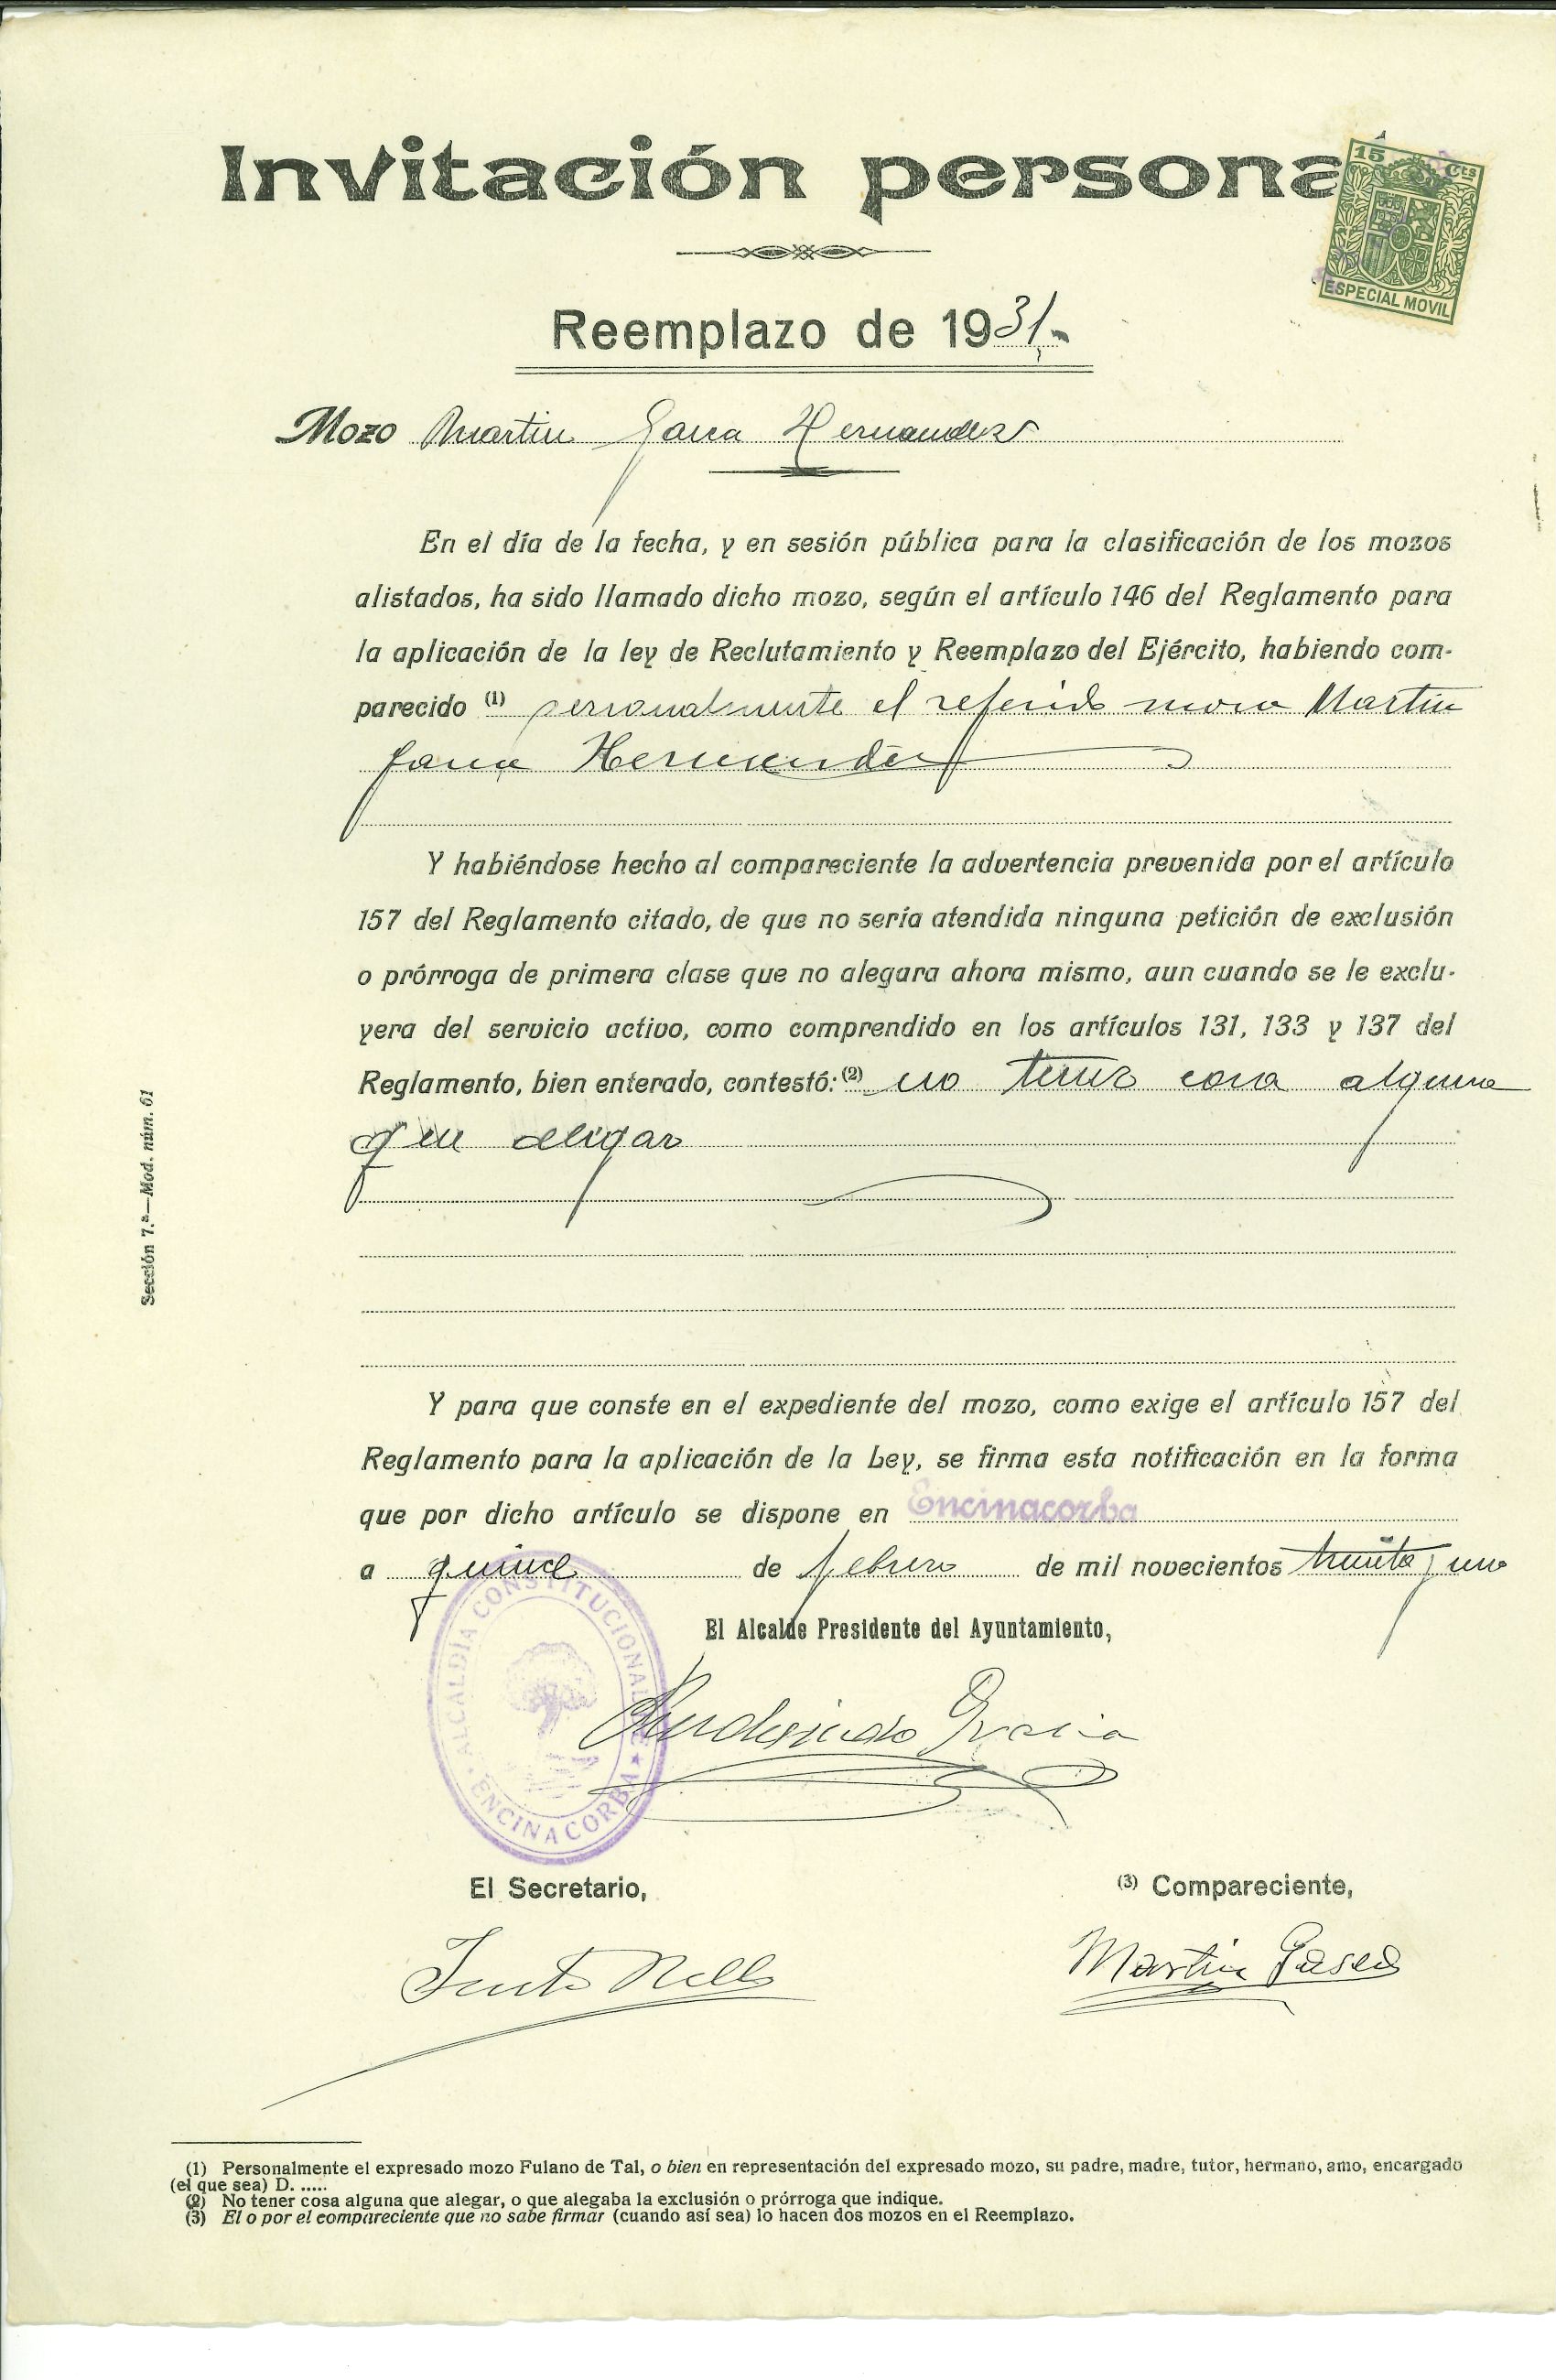 Invitación persona
15 Cts
ESPECIAL MOVIL
Reemplazo de 1931.-
Mozo Martin Garcia Hernandez
En el día de la fecha, y en sesión pública para la clasificación de los mozos
alistados, ha sido llamado dicho mozo, según el artículo 146 del Reglamento para
la aplicación de la ley de Reclutamiento y Reemplazo del Ejército, habiendo com-
parecido (1) personalmente el referido mozo Martin
Garcia Hernandez
Y habiéndose hecho al compareciente la advertencia prevenida por el artículo
157 del Reglamento citado, de que no sería atendida ninguna petición de exclusión
o prórroga de primera clase que no alegara ahora mismo, aun cuando se le exclu-
yera del servicio activo, como comprendido en los artículos 131, 133 y 137 del
Reglamento, bien enterado, contestó: (2) no tener cosa alguna
que alegar
Sección 7.ª—Mod. núm. 61
Y para que conste en el expediente del mozo, como exige el artículo 157 del
Reglamento para la aplicación de la Ley, se firma esta notificación en la forma
que por dicho artículo se dispone en Encinacorba
a quince de febrero de mil novecientos treinta y uno
El Alcalde Presidente del Ayuntamiento,
ALCALDÍA CONSTITUCIONAL DE
ENCINACORBA
Gracia
El Secretario,
(3) Compareciente,
Justo
Martin
(1) Personalmente el expresado mozo Fulano de Tal, o bien en representación del expresado mozo, su padre, madre, tutor, hermano, amo, encargado
(el que sea) D. .....
(2) No tener cosa alguna que alegar, o que alegaba la exclusión o prórroga que indique.
(3) El o por el compareciente que no sabe firmar (cuando así sea) lo hacen dos mozos en el Reemplazo.